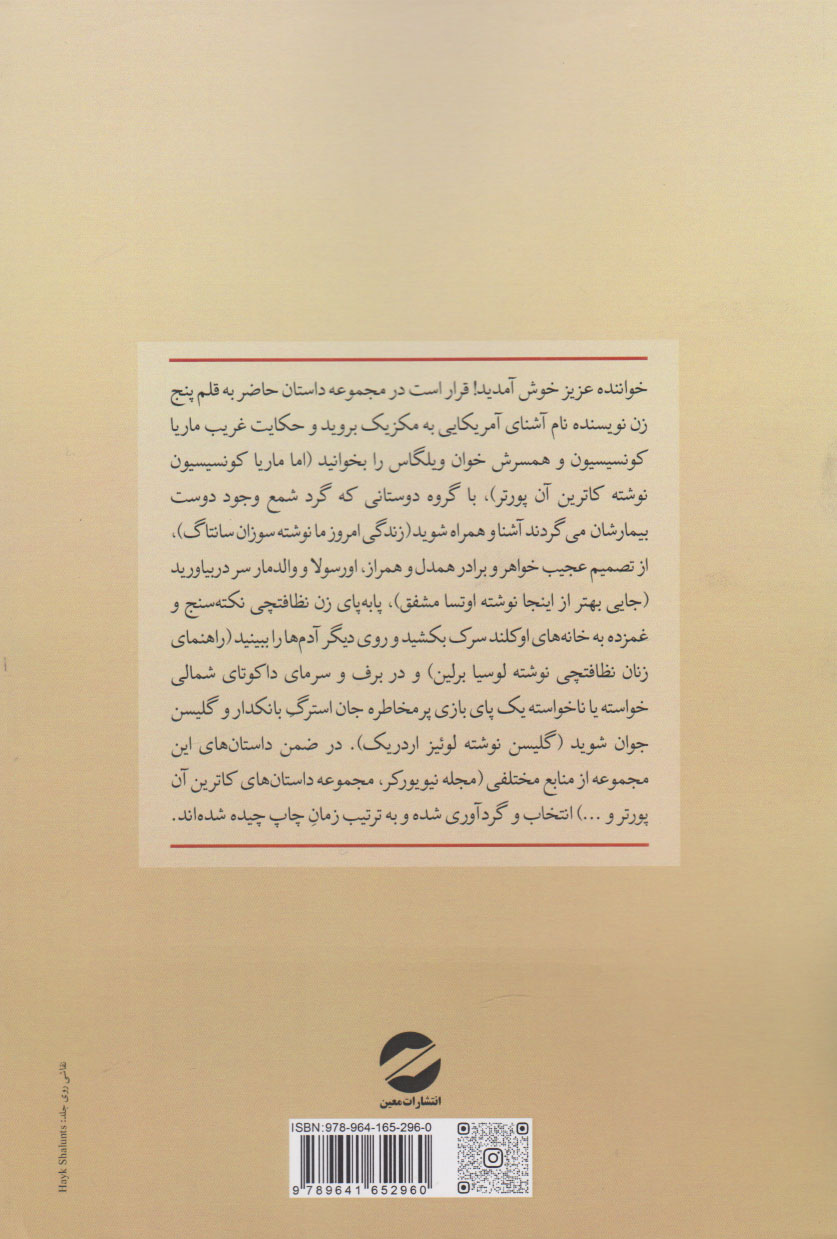 خواننده عزیز خوش آمدید! قرار است در مجموعه داستان حاضر به قلم پنج
زن نویسنده نام آشنای آمریکایی به مکزیک بروید و حکایت غریب ماریا
کونسیسیون و همسرش خوان ویلگاس را بخوانید (اما ماریا کونسیسیون
نوشته کاترین آن پورتر)، با گروه دوستانی که گرد شمع وجود دوست
بیمارشان می‌گردند آشنا و همراه شوید (زندگی امروز ما نوشته سوزان سانتاگ)،
از تصمیم عجیب خواهر و برادر همدل و همراز، اورسولا و والدمار سر دربیاورید
(جایی بهتر از اینجا نوشته اوتسا مشفق)، پابه‌پای زن نظافتچی نکته‌سنج و
غمزده به خانه‌های اوکلند سرک بکشید و روی دیگر آدم‌ها را ببینید (راهنمای
زنان نظافتچی نوشته لوسیا برلین) و در برف و سرمای داکوتای شمالی
خواسته یا ناخواسته یک پای بازی پرمخاطره جان استرگِ بانکدار و گلیسن
جوان شوید (گلیسن نوشته لوئیز اردریک). در ضمن داستان‌های این
مجموعه از منابع مختلفی (مجله نیویورکر، مجموعه داستان‌های کاترین آن
پورتر و ...) انتخاب و گردآوری شده و به ترتیب زمانِ چاپ چیده شده‌اند.
انتشارات معین
ISBN: 978-964-165-296-0
9 789641 652960
نقاشی روی جلد: Hayk Shalunts